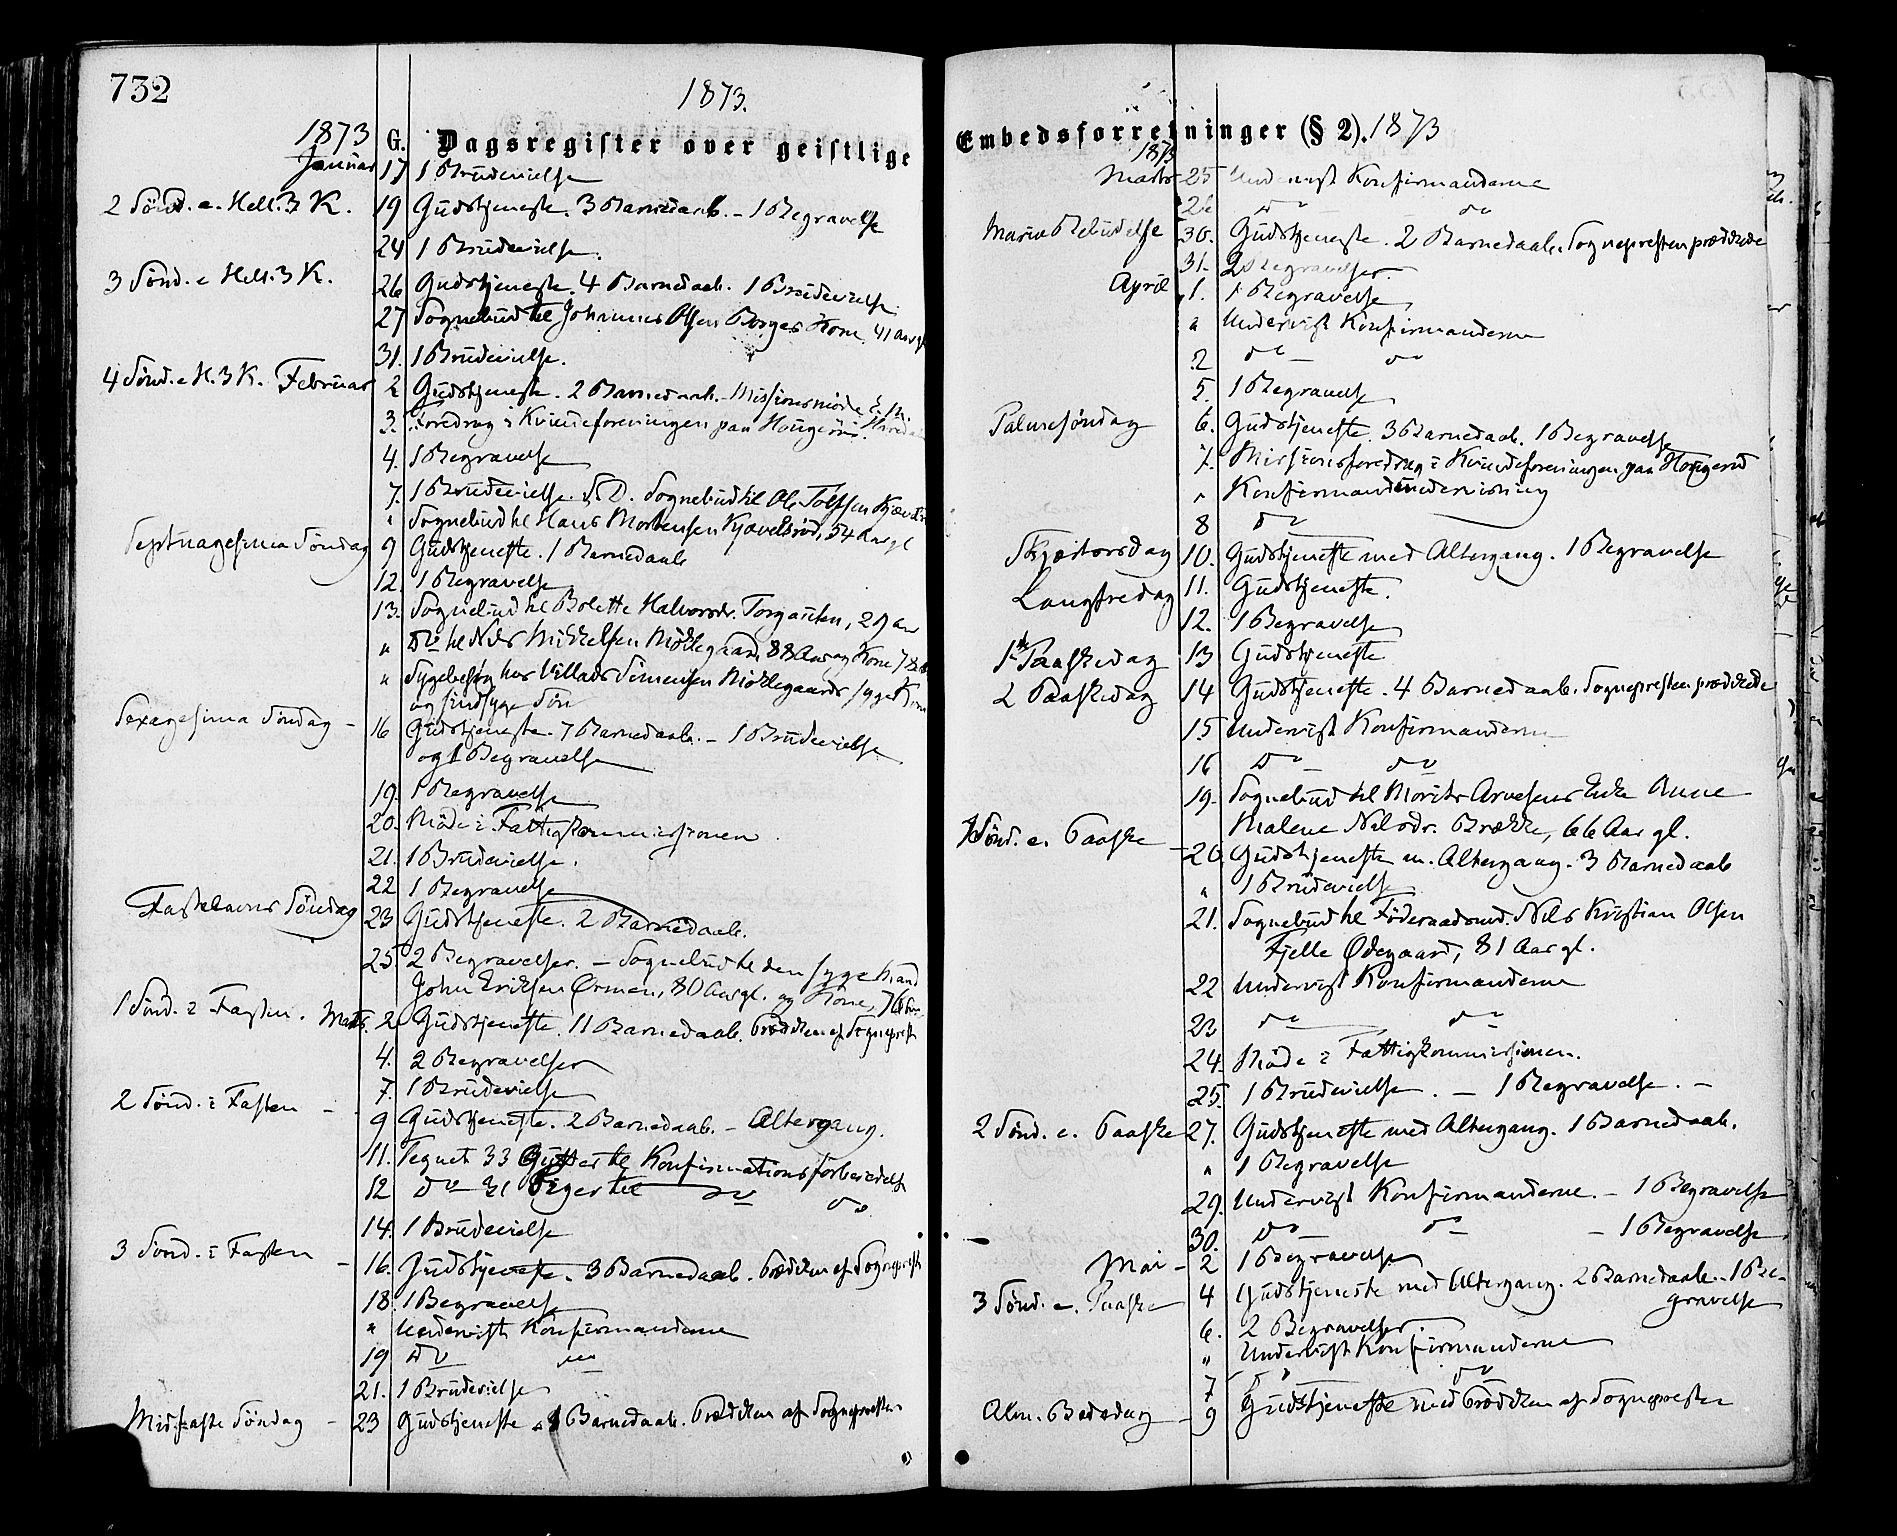 732
1873.
1873 G. Dagsregister over geistlige
Januar 17 1 Brudevielse
2 Sønd. e. Hell. 3 K. 19 Gudstjeneste. 3 Barnedaab. – 1 Begravelse
24 1 Brudevielse.
3 Sønd. e Hell. 3 K. 26 Gudstjeneste. 4 Barnedaab. 1 Brudevielse
27 Sognebud til Johannes Olsen Borges Kone, 41 Aar gl
31. 1 Brudevielse.
4 Sønd. e H. 3 K. Februar 2 Gudstjeneste. 2 Barnedaab. – Missionsmøde
3. Foredrag i Kvindeforeningen paa Hougerud.
4. 1 Begravelse
7. 1 Brudevielse. S. D. Sognebud til Ole
" Sognebud til Hans Mortensen Kjævelsrød, 54 Aar gl
Septuagesima Søndag 9 Gudstjeneste. 1 Barnedaab
12. 1 Begravelse
13. Sognebud til Bolette Halvorsdr. 
" Do til Niels Mikkelsen Møllegaard 88 Aar og Kone
" Sygebesøg hos Villads Simensen Møllegaards syge Kone
og sindsyge Søn
Sexagesima Søndag – 16 Gudstjeneste. 7 Barnedaab. – 1 Brudevielse
og 1 Begravelse
19. 1 Begravelse
20. Møde i Fattigkommissionen.
21. 1 Brudevielse.
22 1 Begravelse
Fastelavns Søndag 23 Gudstjeneste. 2 Barnedaab.
25 2 Begravelser. – Sognebud til den syge Mand
John Eriksen Ørmen, 80 Aar gl. og Kone, 76
1 Sønd. i Fasten. Marts. 2. Gudstjeneste. 11 Barnedaab. Prædiken af Sognepræst
4. 2 Begravelser
7. 1 Brudevielse
2 Sønd. i Fasten – 9 Gudstjeneste. 2 Barnedaab. – Altergang.
11. Tegnet 33 Gutter til Konfirmationsforberedelse
12 Do 31 Piger til do do
14. 1 Brudevielse
3 Sønd. i Fasten – 16. Gudstjeneste. 3 Barnedaab. Prædiken af Sognepræst
18. 1 Begravelse
" Undervist Konfirmanderne
19 Do "
21. 1 Brudevielse
Midfaste Søndag – 23 Gudstjeneste. 8 Barnedaab. Prædiken af Sognepresten
Embedsforretninger (§ 2). 1873
1873
Marts 25 Undervist Konfirmanderne
26 Do – do
Mariæ Bebudelse 30. Gudstjeneste. 2 Barnedaab. Sognepresten prædikede
31. 2 Begravelser.
April 1. 1 Begravelse
" Undervist Konfirmanderne
2 do – do
5. 1 Begravelse
Palmesøndag 6. Gudstjeneste. 3 Barnedaab. 1 Begravelse
7. Missionsforedrag i Kvindeforeningen paa Hougerud
" Konfirmandundervisning
8 do
Skjærtorsdag 10. Gudstjeneste med Altergang. 1 Begravelse
Langfredag 11. Gudstjeneste.
12. 1 Begravelse
1ste Paaskedag 13 Gudstjeneste
2 Paaskedag 14 Gudstjeneste. 4 Barnedaab. Sognepresten prædikede
15 Undervist Konfirmanderne
16 Do – do
19. Sognebud til Morits Arvesens Enke Anne
Malene Nilsdr. Brække, 66 Aar gl.
1 Sønd. e. Paaske – 20. Gudstjeneste m. Altergang. 3 Barnedaab
" 1 Brudevielse
21. Sognebud til Føderaadsmd. Nils Kristian Olsen
Fjelle Ødegaard, 81 Aar gl.
22 Undervist Konfirmanderne
23 do do
24. Møde i Fattigkommissionen.
25. 1 Brudevielse. – 1 Begravelse. –
2 Sønd. e. Paaske 27. Gudstjeneste med Altergang. 1 Barnedaab.
" 1 Begravelse
29. Undervist Konfirmanderne. – 1 Begravelse
30. Do – do – 1 Begravelse.
Mai – 2 1 Begravelse
3 Sønd. e. Paaske 4 Gudstjeneste med Altergang. 2 Barnedaab. – 1 Be-
gravelse
6. 2 Begravelser.
" Undervist Konfirmanderne
7 Do do
Alm. Bededag – 9 Gudstjeneste med Prædiken af Sognepresten